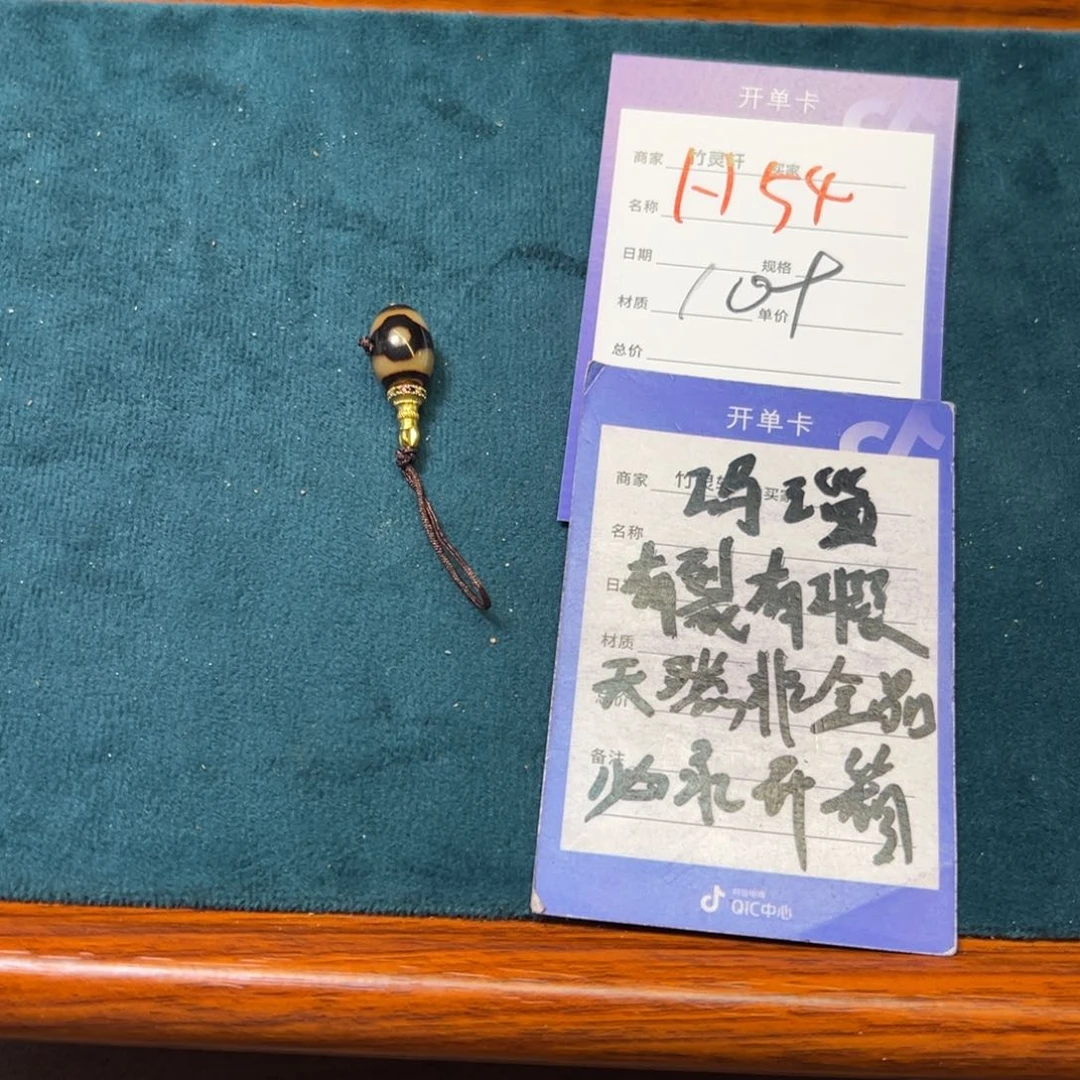 开单卡
商家 竹灵轩 买家
H54
名称
日期 规格
109
材质 单价
总价
开单卡
商家 竹灵轩 买家
玛瑙
名称
有裂有瑕
材质
天然,非全品
备注
必录开箱
QIC中心